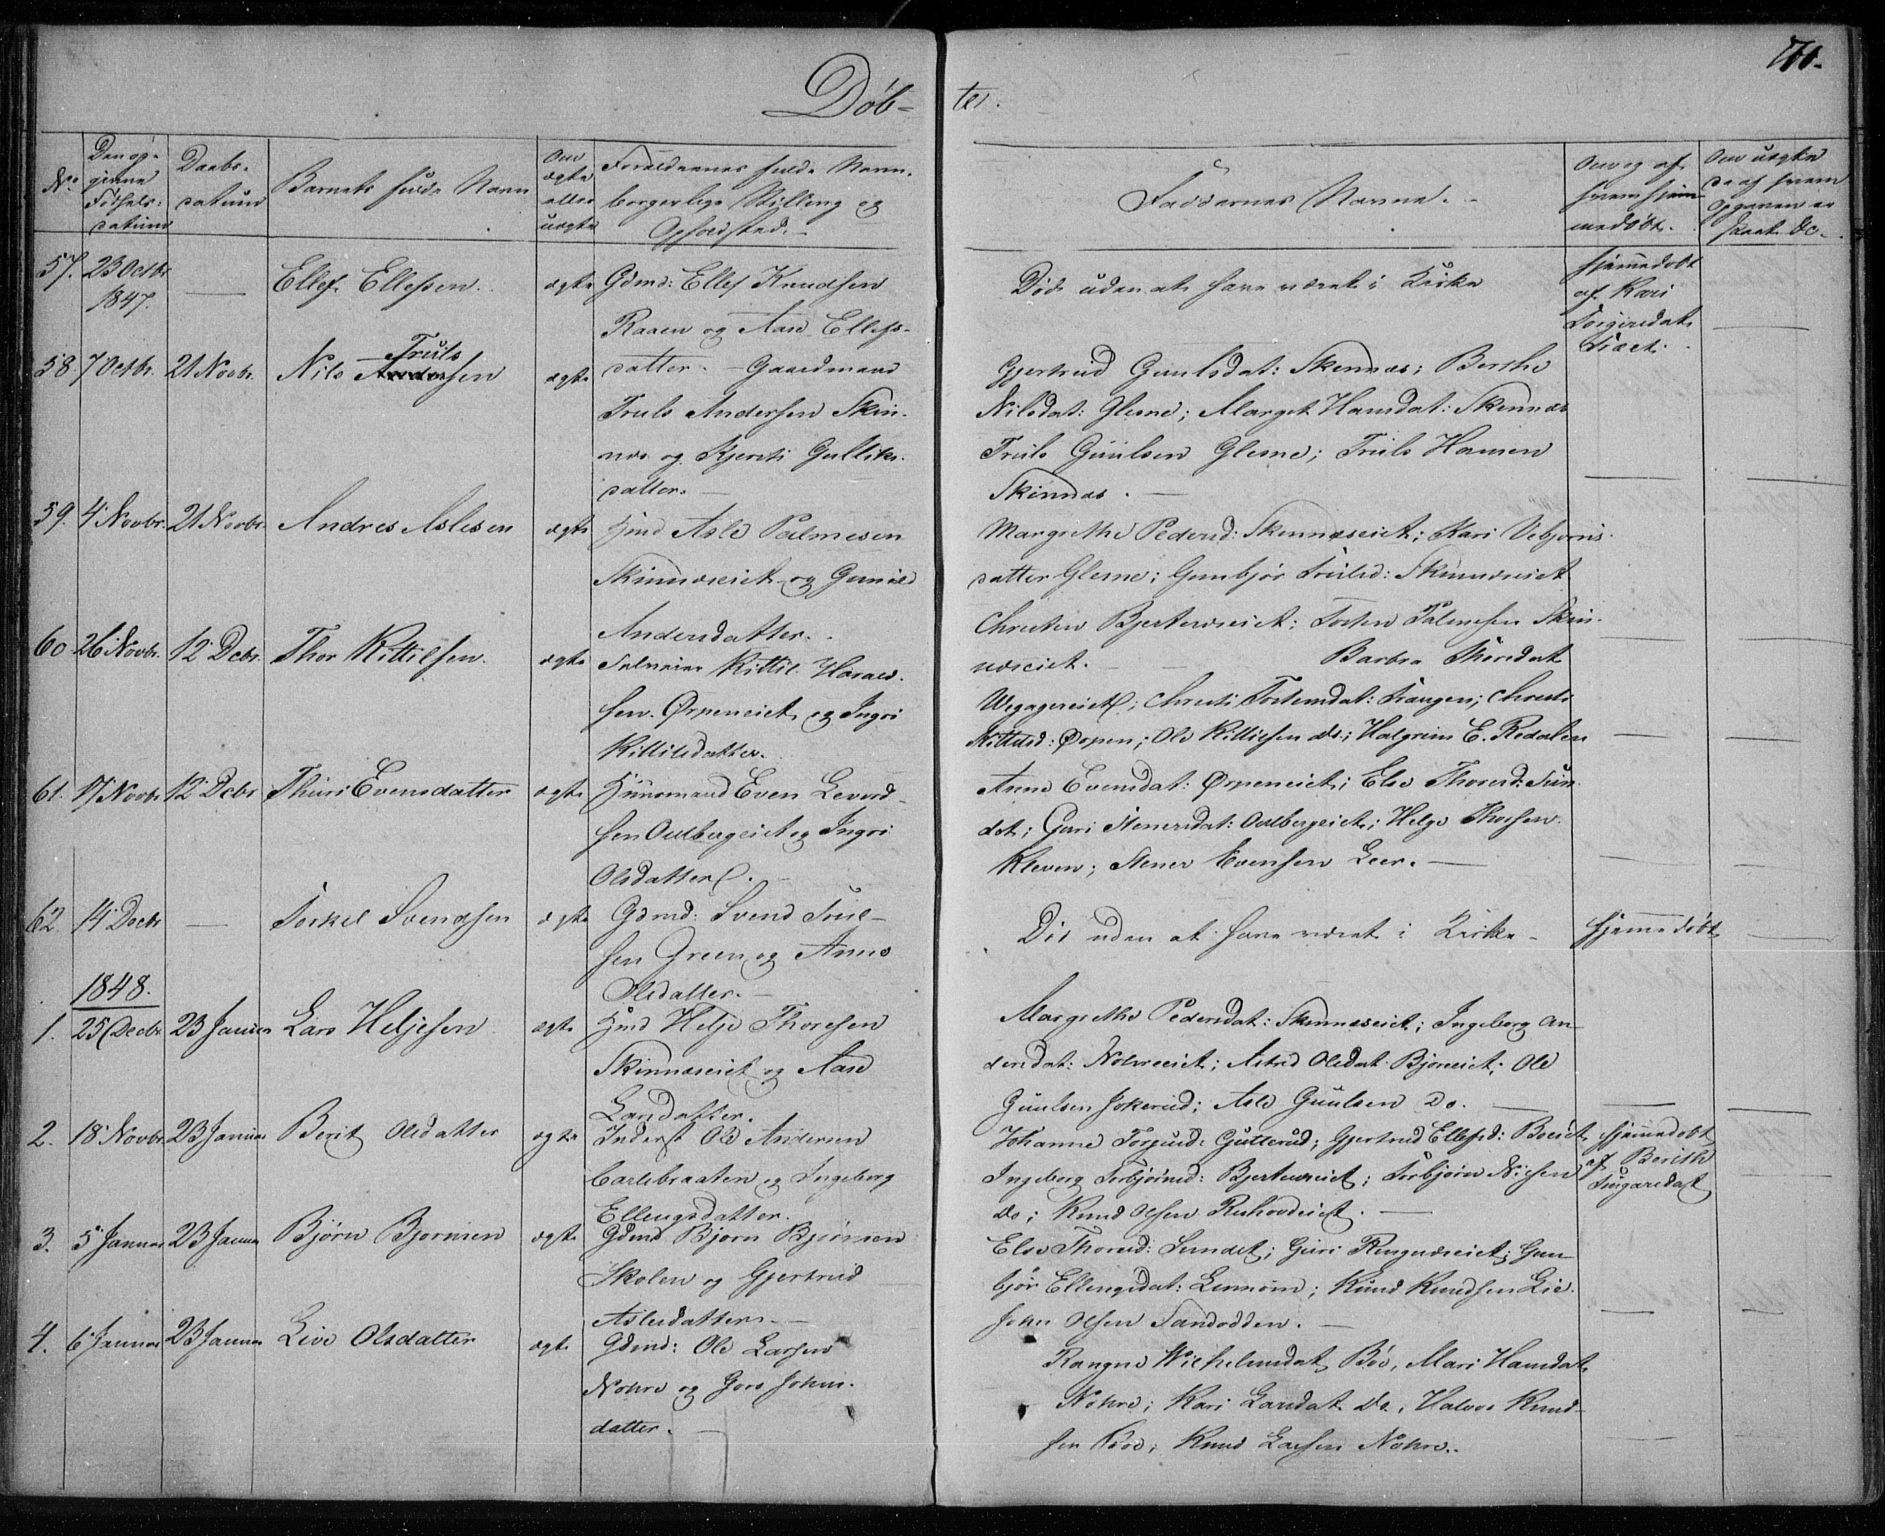 Døb-
ter.
No.
Den op-
givne
Fødsels-
datum
Daabs-
datum
Barnets fulde Navn
Om
ægte
eller
uægte
Forældrenes fulde Navn,
borgerlige Stilling og
Opholdsted.
Faddernes Navne.
Om og af
hvem hjem
medøbt.
Om uægte
da af hvem
Opgaven er
skeet &c.
57. 23 Octbr
1847.
Ellef Ellefsen
ægte
Gdmd: Ellef Knudsen
Raaen og Aase Ellefs-
datter.
Død uden at have været i Kirke
Hjemmedøbt
af Kari
Torgersdat
58 7 Octbr. 21 Novbr.
Nils Trulsen
ægte
Gaardmand
Truls Andersen Skin-
næs og Kjersti Gulliks-
datter.
Gjertrud Guulsdat: Skinnæs; Berthe
Nilsdat: Glesne; Marget Hansdat: Skinnæs
Truls Guulsen Glesne; Truls Hansen
Skinnæs.
59. 4 Novbr. 21 Novbr.
Andres Aslesen
ægte
Hmd Asle Palmesen
Skinnæseiet og Gunild
Andersdatter.
Margrethe Pedersd: Skinnæseiet; Kari Vebjørns-
datter Glesne; Gunbjør Trulsd: Skinnæseiet
Christen Bjertnæseiet; Torsten Palmesen Skin-
næseiet.
60 26 Novbr. 12 Debr.
Thor Kittilsen.
ægte
Kittil Harald-
sen Ørpeneiet og Ingri
Kittilsdatter.
Barbra Thorsdat
Christi Torstensdat: Trangen; Christi
Kittilsd: Ørpen; Ole Kittilsen do; Halgrim E. Redalen
61. 17 Novbr 12 Debr
Thuri Evensdatter
ægte
Huusmand Even Leverd-
sen Oulbergeiet og Ingri
Olsdatter.
Anne Evensdat: Ørpeneiet; Else Thorsd: Sun-
det; Guri Stenersdat: Oulbergeiet; Helge Thorsen
Kleven; Stener Evensen Leer.
62 14 Decbr
Torkel Svendsen
ægte
Gdmd: Svend Trul-
sen Green og Anne
Olsdatter.
Død uden at have været i Kirke
Hjemmedøbt
1848.
1. 25 Decbr 23 Januar
Lars Heljesen
ægte
Hmd Helje Thoresen
Skinnæseiet og Aase
Larsdatter.
Margrethe Pedersdat: Skinnæseiet; Ingeborg An-
dersdat: Nohreeiet; Astrid Olsdat Bjøreeiet; Ole
Guulsen Jokerud; Asle Guulsen do.
2. 18 Novbr 23 Januar
Berit Olsdatter
ægte
Inderst Ole Andersen
Carlsbraaten og Ingeborg
Ellengsdatter.
Johanne Torjusd: Gutterud; Gjertrud Ellefsd: Boeiet
Ingeborg Torbjørnsd: Bjertnæseiet; Torbjørn Nilsen
do; Knud Olsen Ruhovdeiet.
Hjemmedøbt
af Berith
3. 5 Januar 23 Januar
Bjørn Bjørnsen
ægte
Gdmd Bjørn Bjørnsen
Skolen og Gjertrud
Aslesdatter.
Else Thorsd: Sundet; Guri Ringnæseiet; Gun-
bjør Ellengsdat: Knud Knudsen Lie
John Olsen Sandodden.
4. 6 Januar 23 Januar
Live Olsdatter
ægte
Gdmd: Ole Larsen
Nohre og Goro Johns-
datter.
Rangne Wilhelmsdat Bøe, Mari Hansdat
Nohre; Kari Larsdat do, Halvor Knud-
sen Bøe; Knud Larsen Nohre.